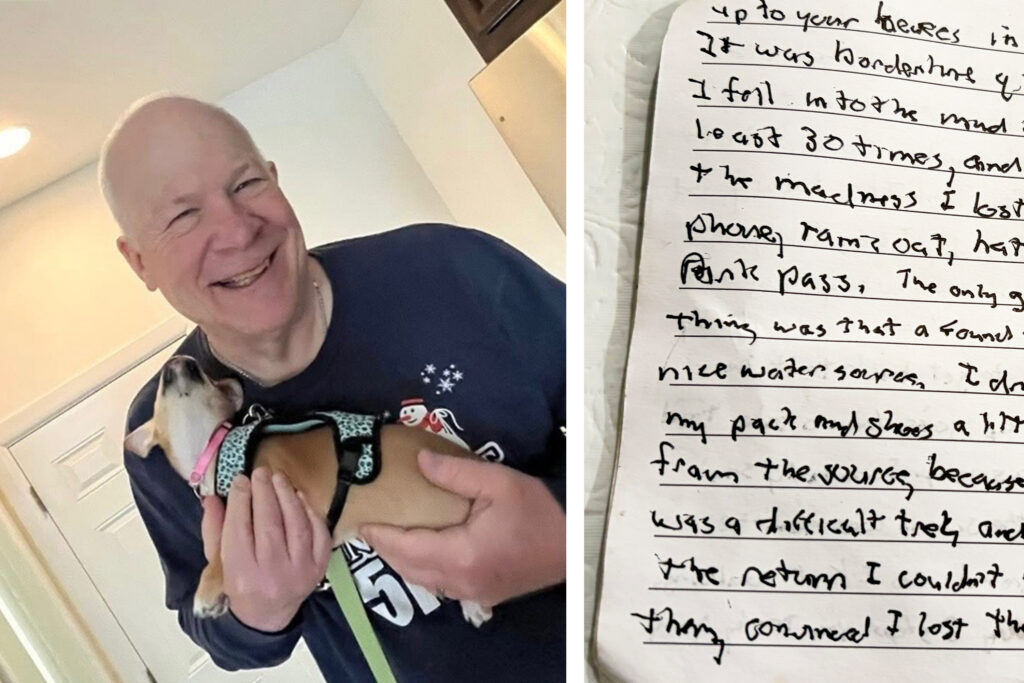 5
up to your in
It was borderline q
I fell into the mud
least 30 times, and
the madness I lost
phone, rain coat, hat
Park pass. The only g
thing was that a found
nice water source. I dr
my pack and shoes a litt
from the source because
was a difficult trek and
the return I couldn't
them convinced I lost the